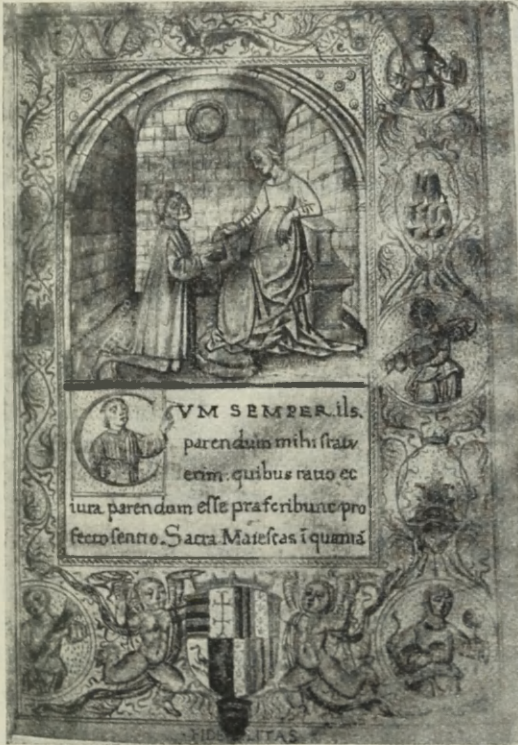 CVM SEMPER ils.
parendum mihi statu
erim: quibus ratio ec
iura parendum esse præscribunt pro
fecto sentio. Sacra Maiestas ī quamā